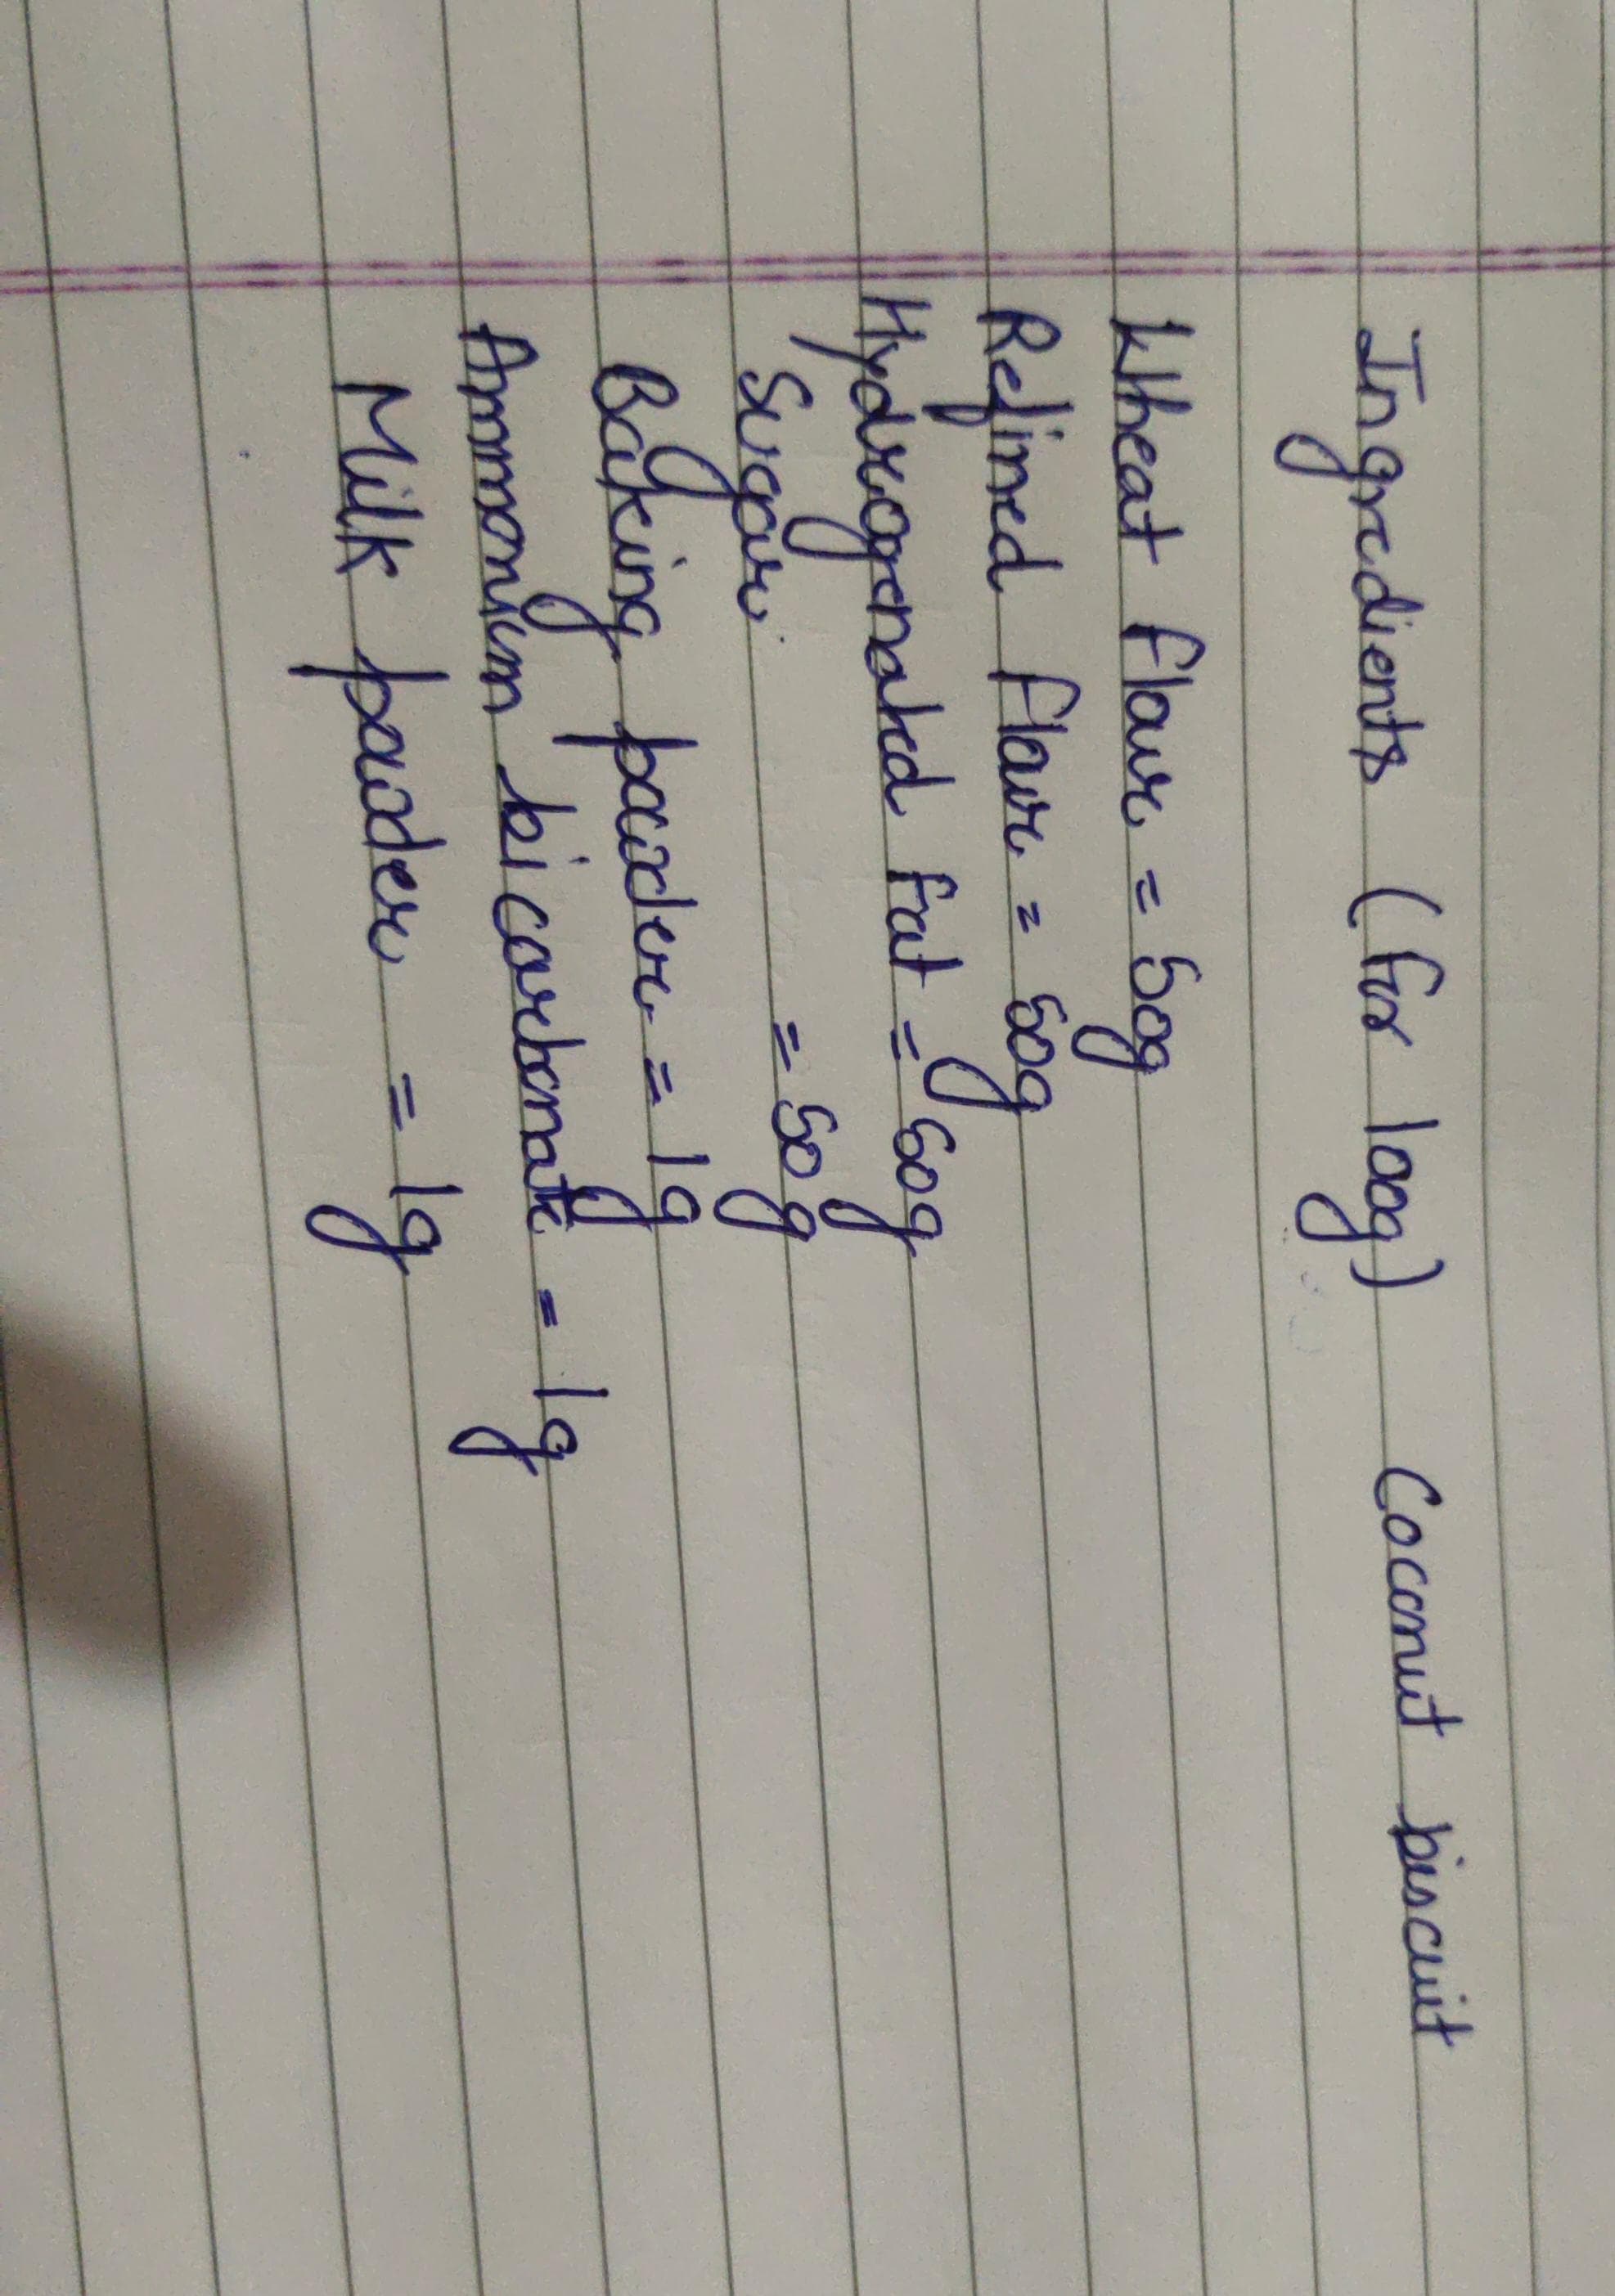 Ingredients (for 100g) Coconut biscuit
Wheat flour = 50g
Refined flour = 50g
Hydrogenated fat = 50g
Sugar = 50g
Baking powder = 1g
Ammonium bicarbonate = 1g
Milk powder = 1g